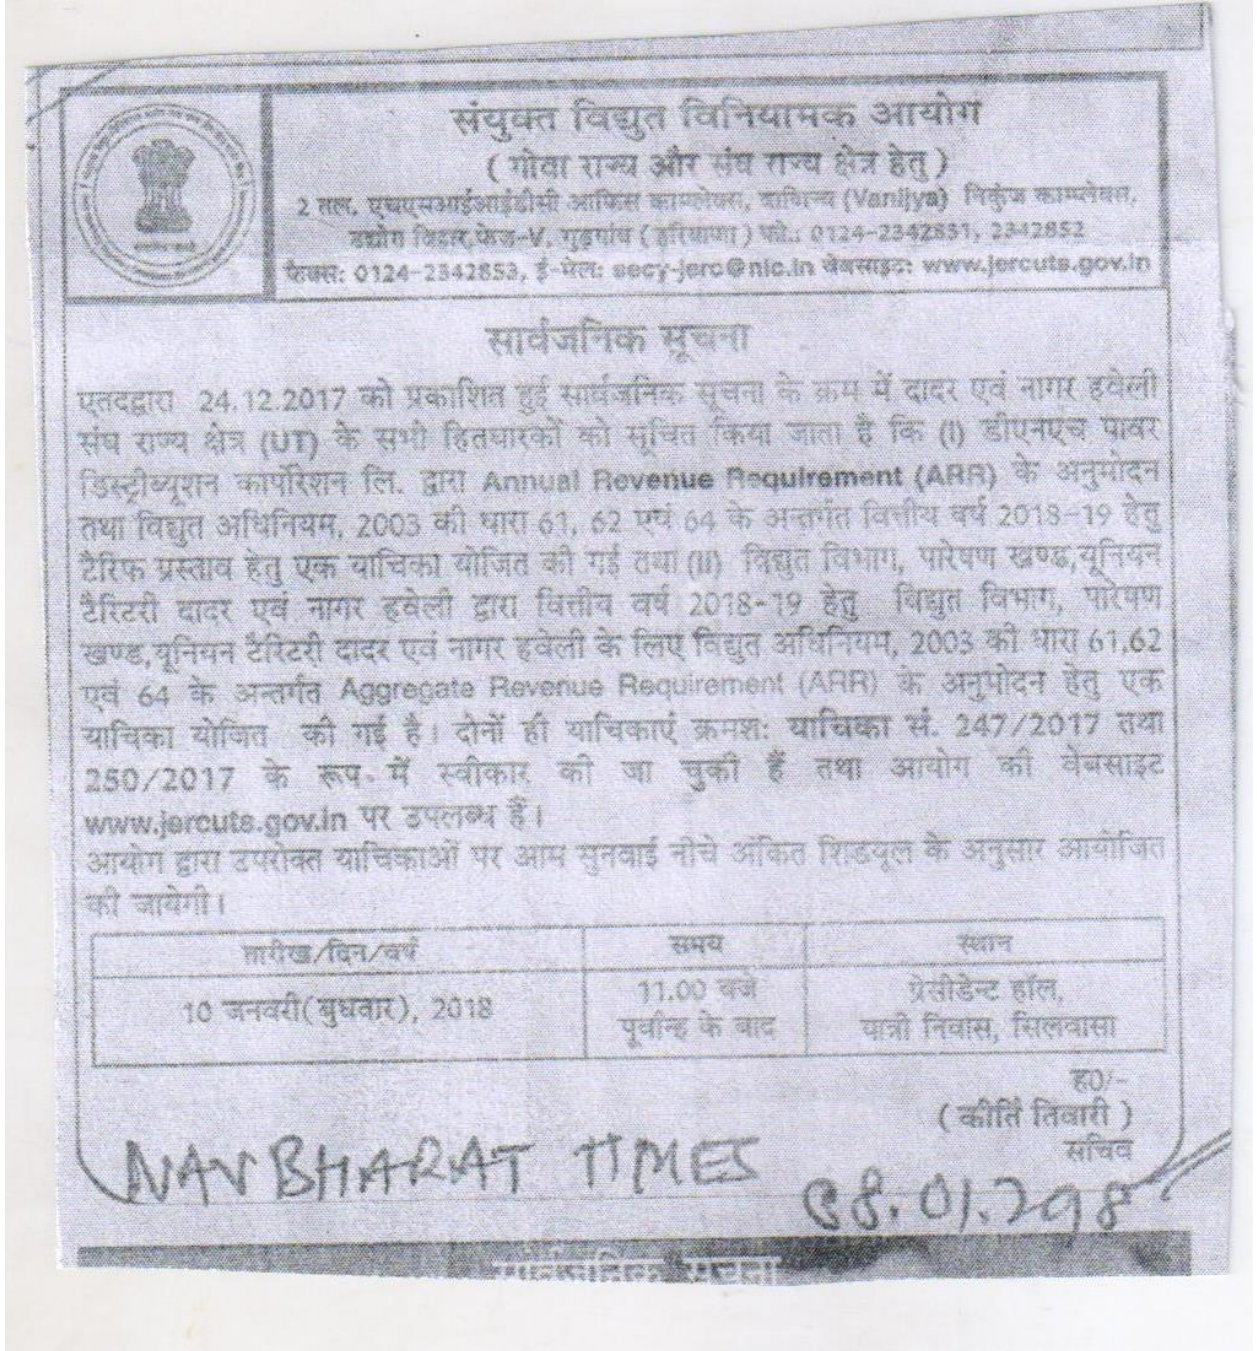 संयुक्त विद्युत विनियामक आयोग
( गोवा राज्य और संघ राज्य क्षेत्र हेतु )
2 तल, एचएसआईआईडीसी आफिस काम्प्लेक्स, वाणिज्य (Vanijya) निकुंज काम्प्लेक्स,
उद्योग विहार,फेज-V, गुड़गांव ( हरियाणा ) फो.: 0124-2342851, 2342852
फैक्स: 0124-2342853, ई-मेल: secy-jerc@nic.in वेबसाइट: www.jercuts.gov.in
सार्वजनिक सूचना
एतदद्वारा 24.12.2017 को प्रकाशित हुई सार्वजनिक सूचना के क्रम में दादर एवं नागर हवेली
संघ राज्य क्षेत्र (UT) के सभी हितधारकों को सूचित किया जाता है कि (I) डीएनएच पावर
डिस्ट्रीब्यूशन कार्पोरेशन लि. द्वारा Annual Revenue Requirement (ARR) के अनुमोदन
तथा विद्युत अधिनियम, 2003 की धारा 61, 62 एवं 64 के अन्तर्गत वित्तीय वर्ष 2018-19 हेतु
टैरिफ प्रस्ताव हेतु एक याचिका योजित की गई तथा (II) विद्युत विभाग, पारेषण खण्ड,यूनियन
टैरिटरी दादर एवं नागर हवेली द्वारा वित्तीय वर्ष 2018-19 हेतु विद्युत विभाग, पारेषण
खण्ड,यूनियन टैरिटरी दादर एवं नागर हवेली के लिए विद्युत अधिनियम, 2003 की धारा 61,62
एवं 64 के अन्तर्गत Aggregate Revenue Requirement (ARR) के अनुमोदन हेतु एक
याचिका योजित की गई है। दोनों ही याचिकाएं क्रमशः याचिका सं. 247/2017 तथा
250/2017 के रूप में स्वीकार की जा चुकी हैं तथा आयोग की वेबसाइट
www.jercuts.gov.in पर उपलब्ध हैं।
आयोग द्वारा उपरोक्त याचिकाओं पर आम सुनवाई नीचे अंकित शिडयूल के अनुसार आयोजित
की जायेगी।
तारीख/दिन/वर्ष समय स्थान
10 जनवरी(बुधवार), 2018 11.00 बजे पूर्वान्ह के बाद प्रेसीडेन्ट हॉल, यात्री निवास, सिलवासा
ह0/-
( कीर्ति तिवारी )
सचिव
NAVBHARAT TIMES
08.01.2018
सार्वजनिक सूचना